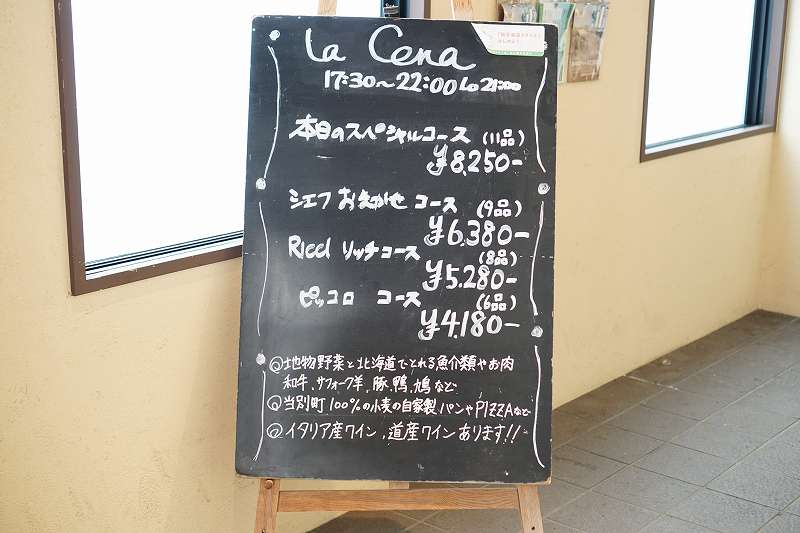 La Cena
17:30~22:00 Lo 21:00
本日のスペシャルコース (11品)
¥8,250-
シェフ おまかせ コース (9品)
¥6,380-
Ricci リッチコース (8品)
¥5,280-
ピッコロ コース (6品)
¥4,180-
地物野菜と北海道でとれる魚介類やお肉
和牛、サフォーク羊、豚、鴨、鳩など
当別町100%の小麦の自家製パンやPIZZAなど
イタリア産ワイン、道産ワインあります!!